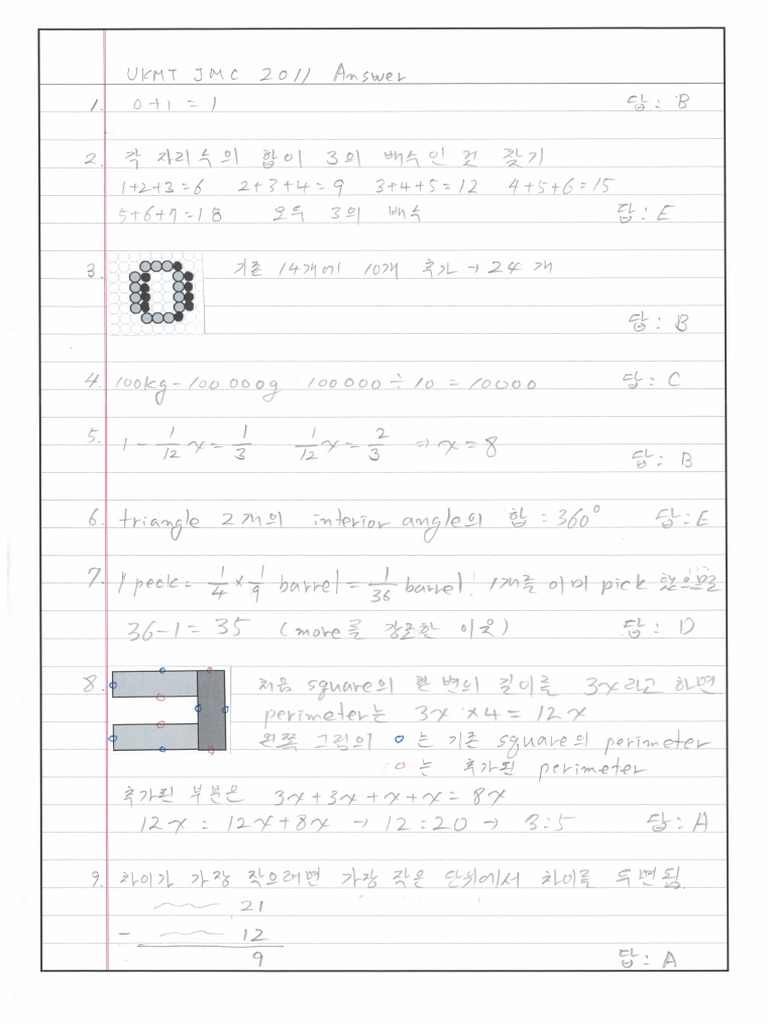 UKMT JMC 2011 Answer
1. 0+1 = 1 답: B
2. 각 자리수의 합이 3의 배수인 것 찾기
1+2+3=6 2+3+4=9 3+4+5=12 4+5+6=15
5+6+7=18 모두 3의 배수 답: E
3. 기존 14개에 10개 추가 → 24 개
답: B
4. 100kg=100 000g 100000÷10 = 10000 답: C
5. 1 - 1/12 x = 1/3 1/12 x = 2/3 ⇒ x = 8
답: B
6. triangle 2개의 interior angle의 합 : 360° 답: E
7. 1 peck = 1/4 × 1/9 barrel = 1/36 barrel. 1개를 이미 pick 했으므로
36-1 = 35 (more를 강조한 이유) 답: D
8. 처음 square의 한 변의 길이를 3x라고 하면
perimeter는 3x × 4 = 12x
왼쪽 그림의 o는 기존 square의 perimeter
o는 추가된 perimeter
추가된 부분은 3x+3x+x+x = 8x
12x : 12x+8x → 12:20 → 3:5 답: A
9. 차이가 가장 작으려면 가장 작은 단위에서 차이를 두면됨.
21
- 12
9
답: A